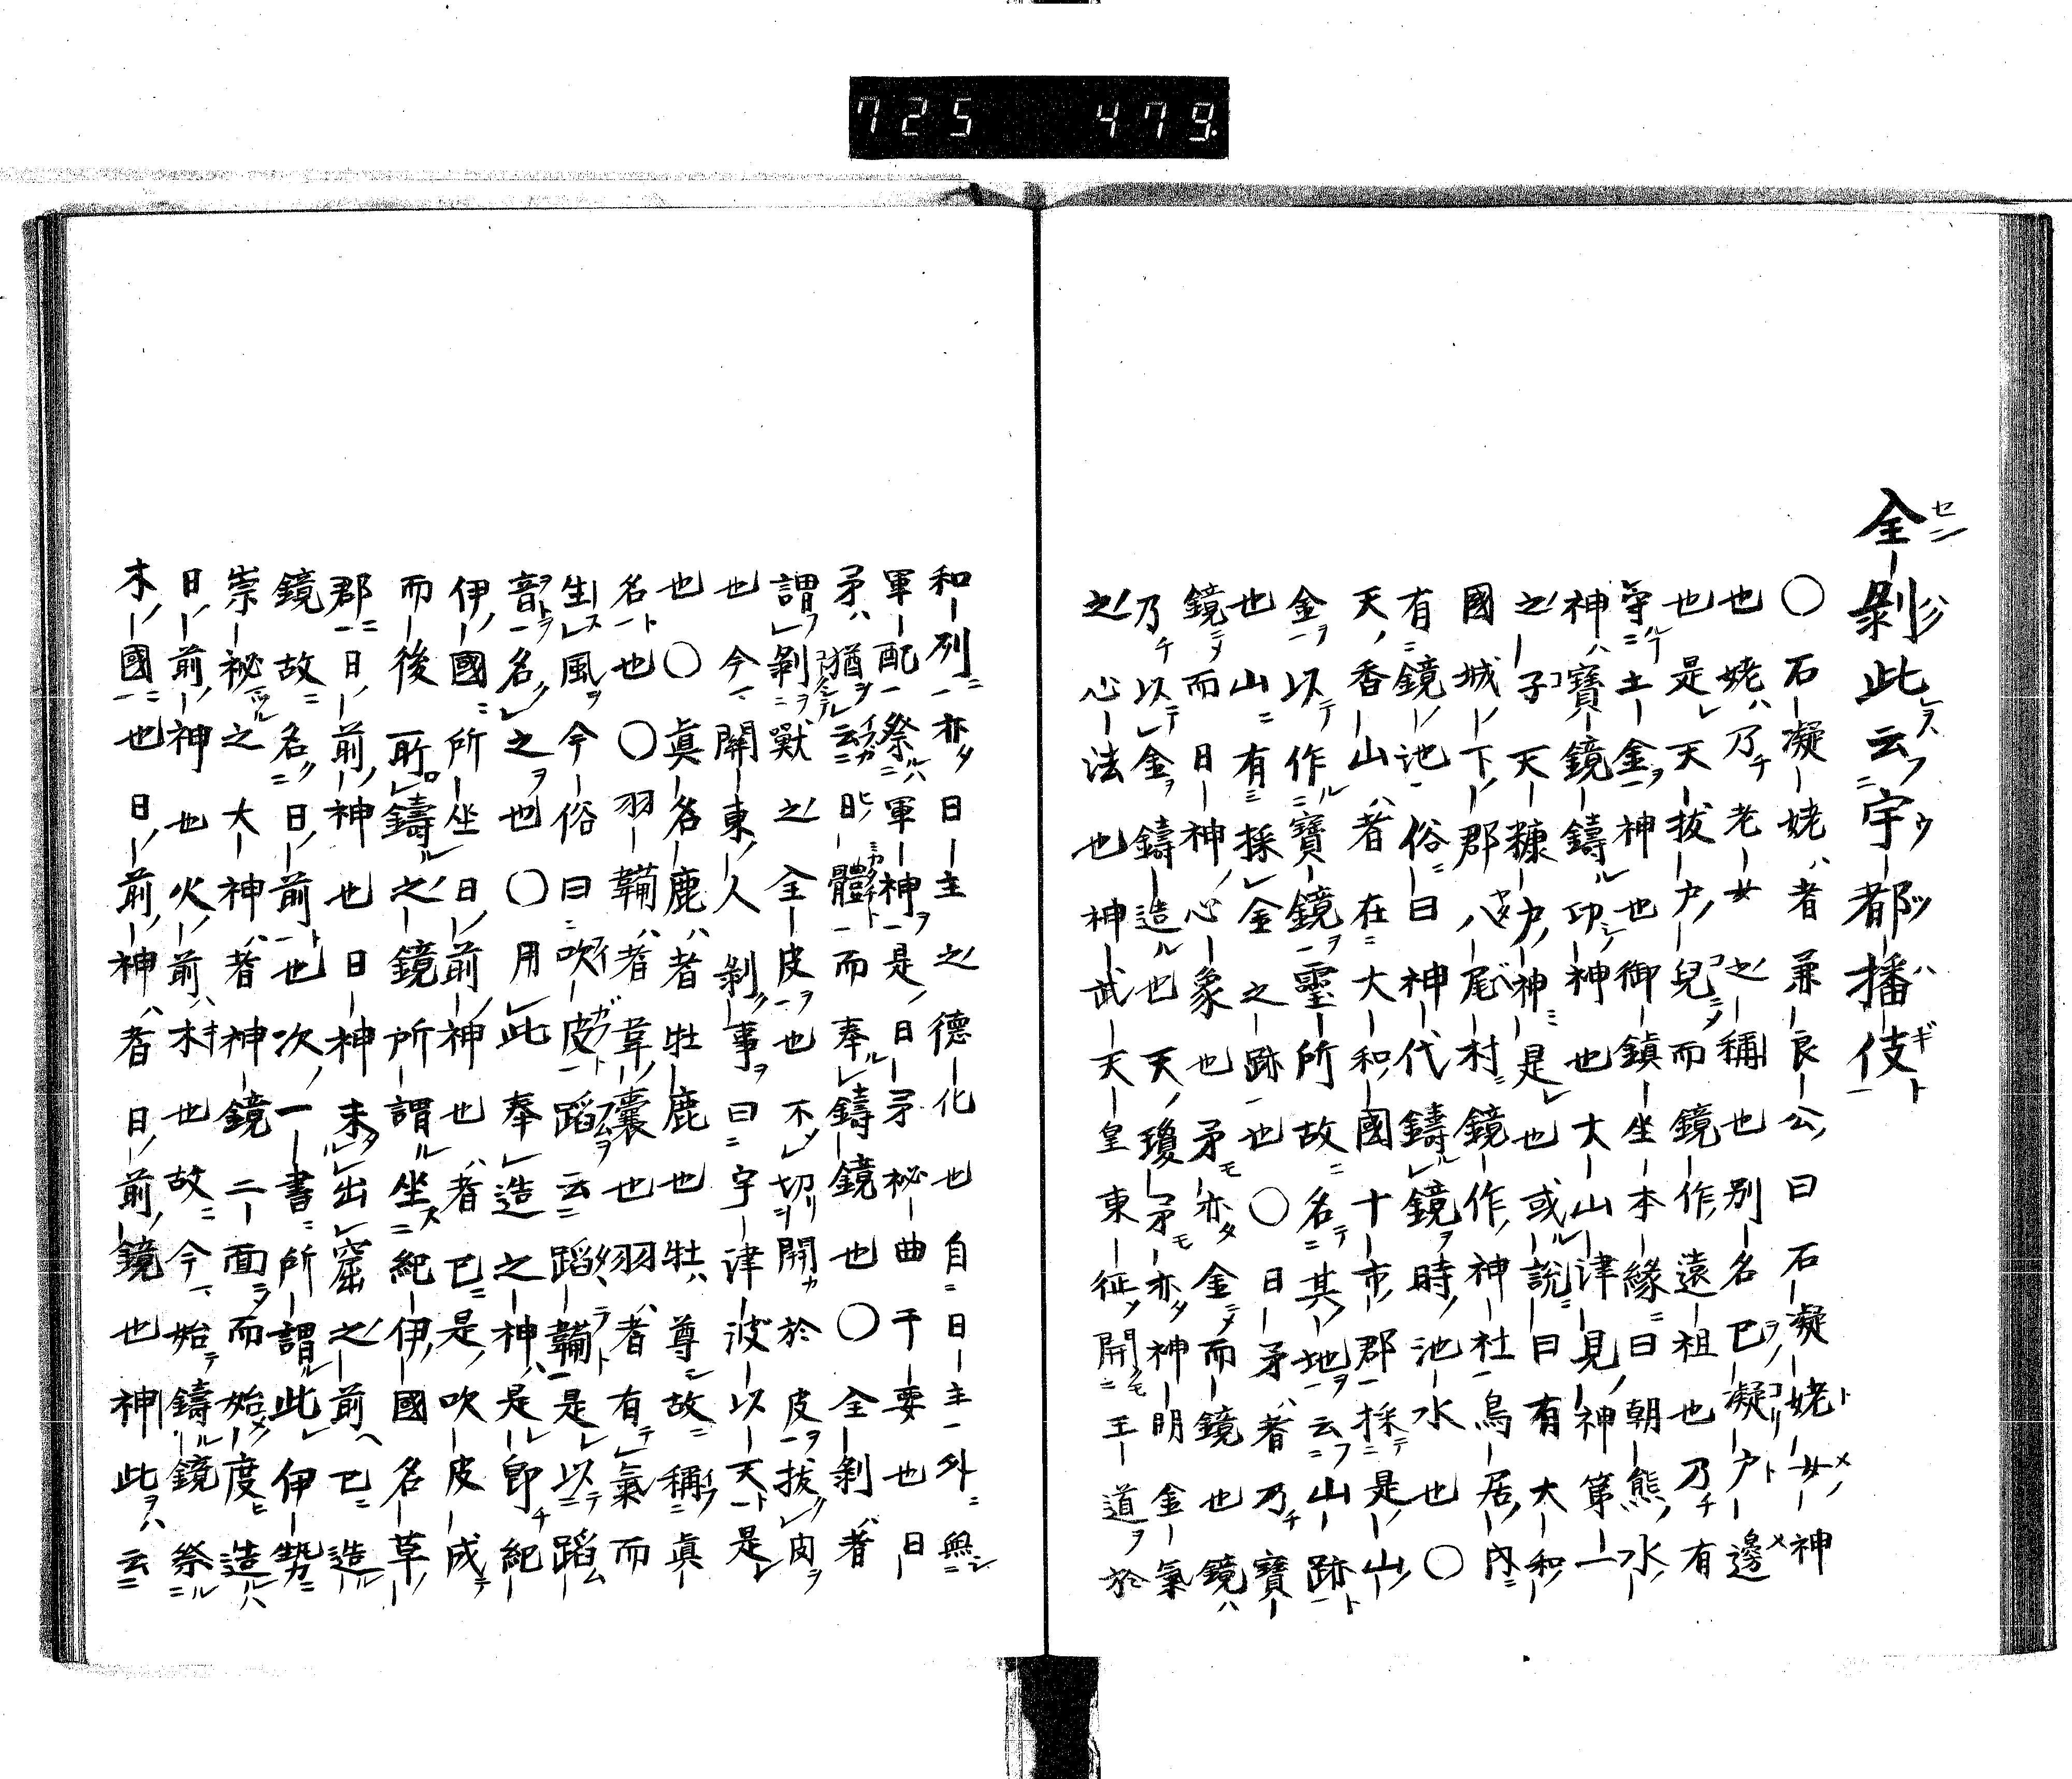 725 479
全剝此云宇都播伎
○石凝姥者兼良公曰石凝姥女神
也姥乃老女之稱也別名已凝戸邊
也是天拔戸兒而鏡作遠祖也乃有
守土金神也御鎮坐本緣曰朝熊水
神寶鏡鑄功神也大山津見神第一
之子天糠戸神是也或說曰有大和
國城下郡八尾村鏡作神社鳥居内
有鏡池俗曰神代鑄鏡時池水也○
天香山者在大和國十市郡採是山
金以作寶鏡靈所故名其地云山跡
也山有採金之跡也○日矛者乃寶
鏡而日神心象也矛亦金而鏡也鏡
乃以金鑄造也天瓊矛亦神明金氣
之心法也神武天皇東征開王道於
和列亦日主之德化也自日主外無
軍配祭軍神是日矛秘曲干要也日
矛猶云日體而奉鑄鏡也○全剝者
謂剝獸之全皮也不切開於皮拔肉
也今關東人剝事曰宇津波以天是
也○眞名鹿者牡鹿也牡尊故稱眞
名也○羽韛者韋囊也羽者有氣而
生風今俗曰吹皮蹈云蹈韛是以蹈
音名之也○用此奉造之神是卽紀
伊國所坐日前神也者已是吹皮成
而後所鑄之鏡所謂坐紀伊國名草
郡日前神也日神未出窟之前已造
鏡故名日前也次一書所謂此伊勢
崇秘之大神者神鏡二面而始度造
日前神也火前木也故今始鑄鏡祭
木國也日前神者日前鏡也神此云